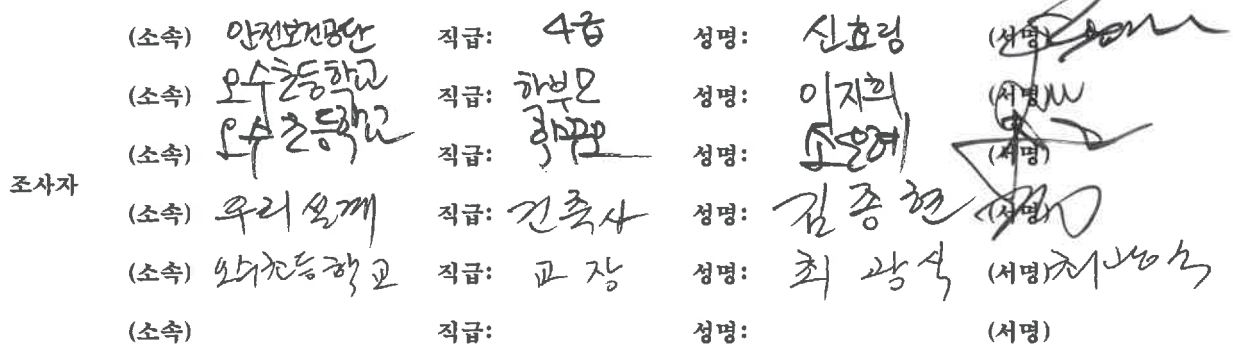 (소속) 안전보건공단 직급: 4급 성명: 신효림 (서명)
(소속) 오수초등학교 직급: 학부모 성명: 이지희 (서명)
(소속) 오수초등학교 직급: 학부모 성명: 소은혜 (서명)
조사자
(소속) 우리설계 직급: 건축사 성명: 김종현 (서명)
(소속) 오수초등학교 직급: 교장 성명: 최광식 (서명) 최광식
(소속) 직급: 성명: (서명)